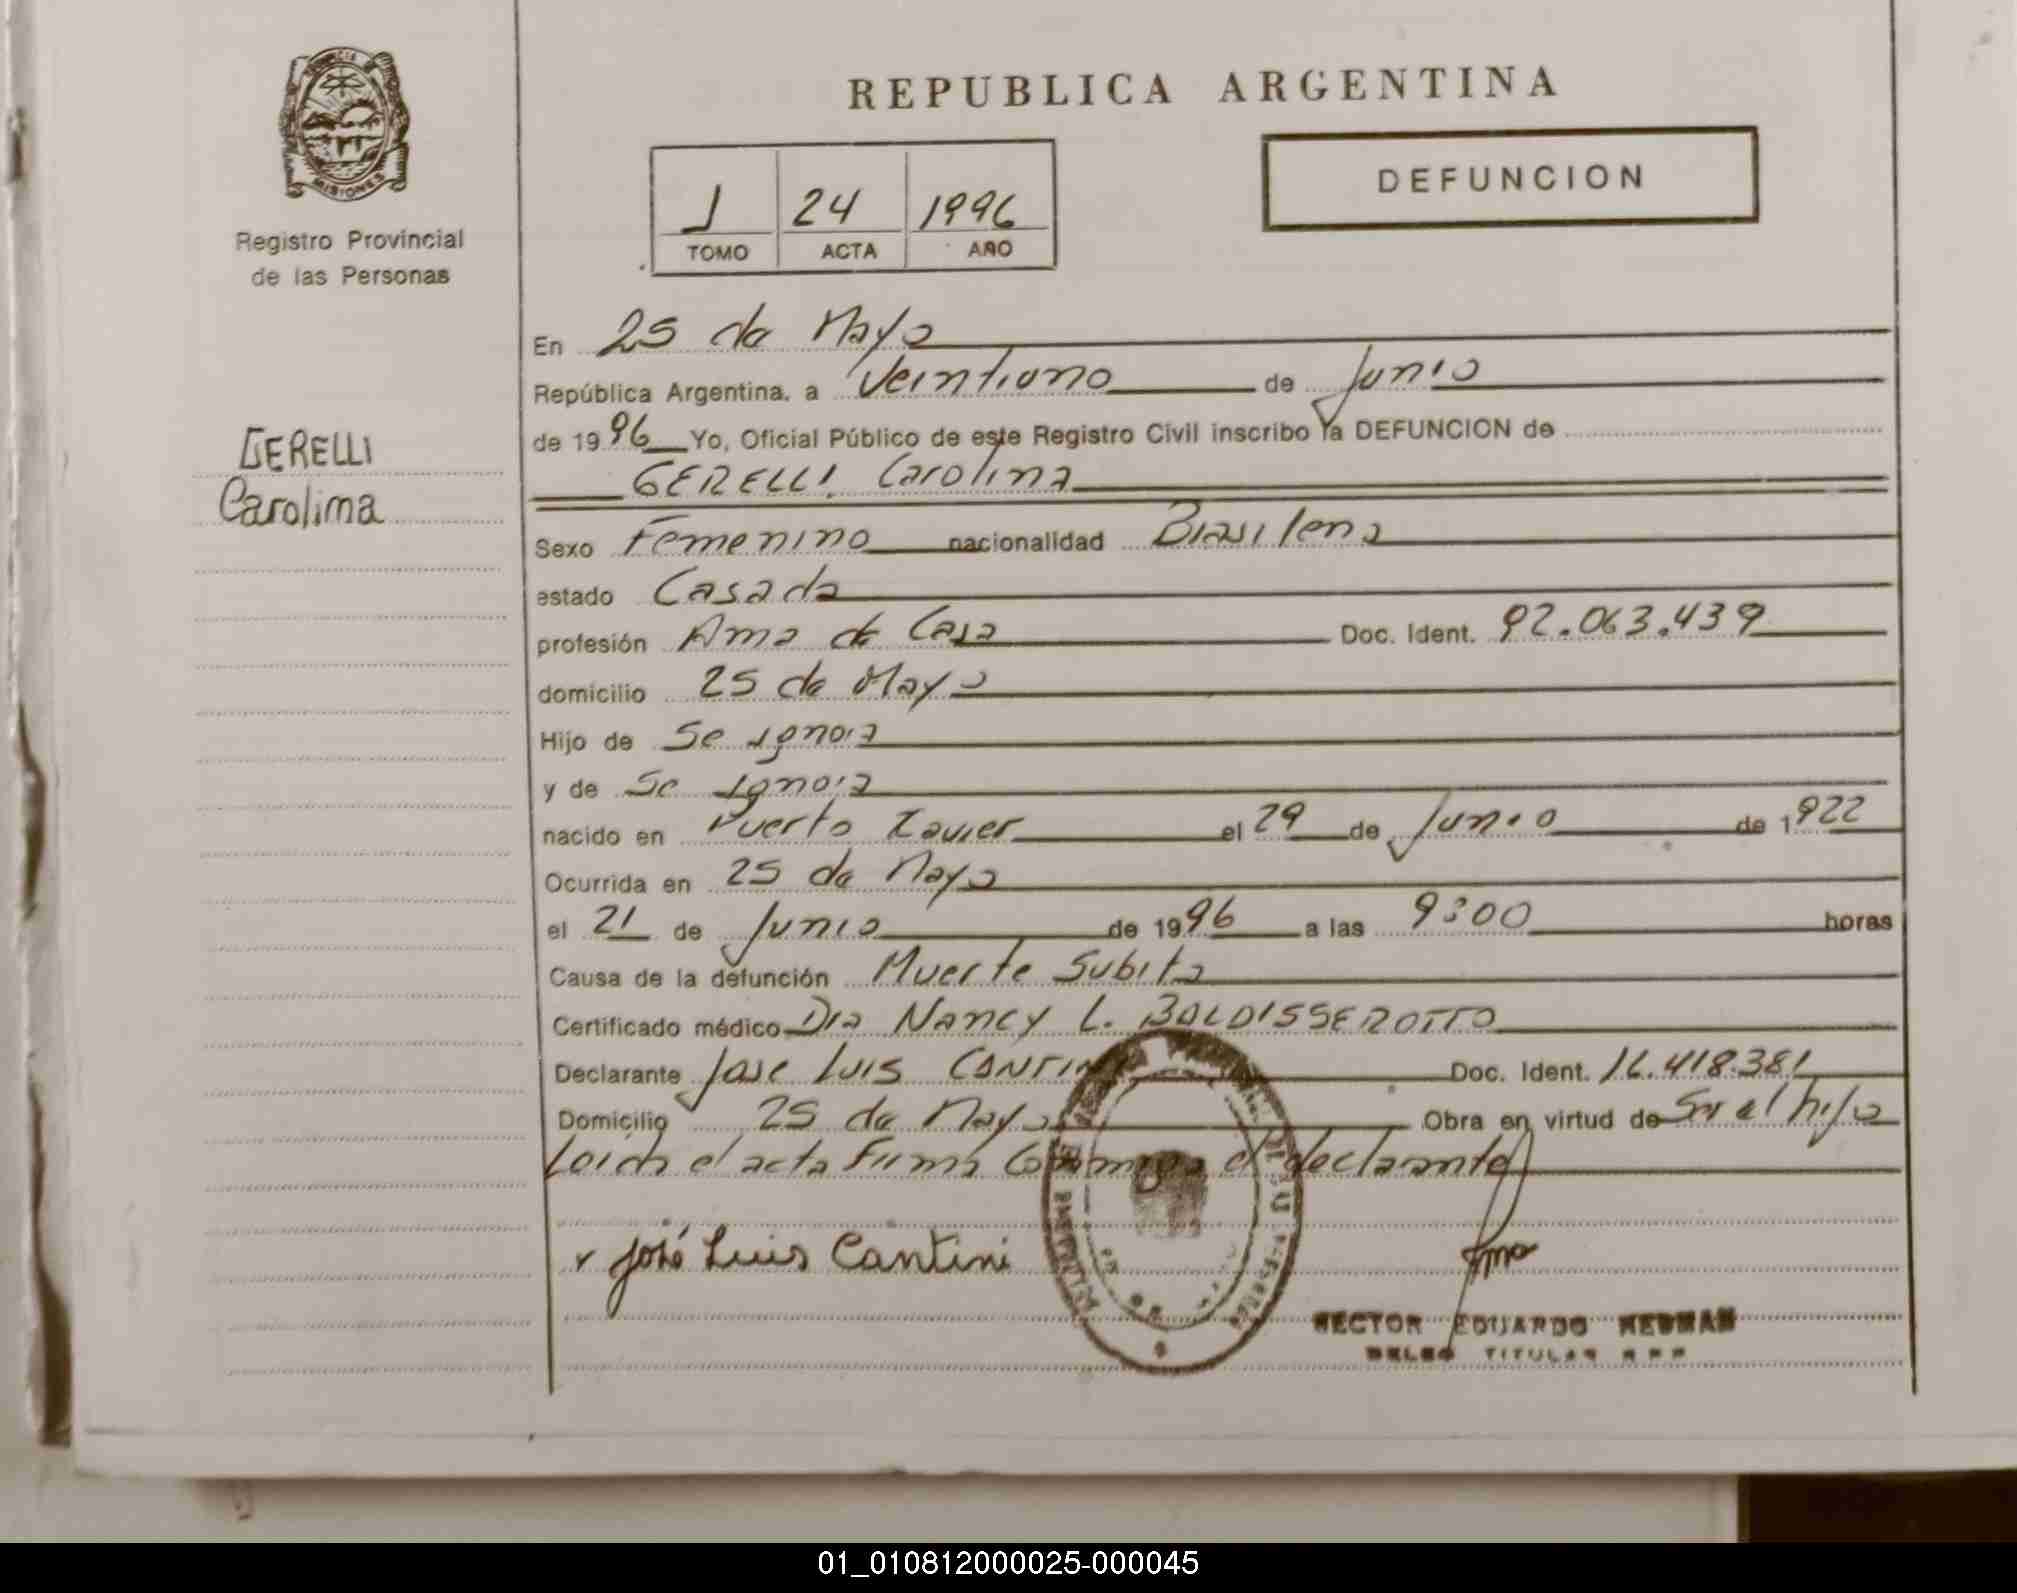 MISIONES
Registro Provincial
de las Personas
GERELLI
Carolina
REPUBLICA ARGENTINA
1 24 1996
TOMO ACTA AÑO
DEFUNCION
En 25 de Mayo
República Argentina, a Veintiuno de Junio
de 1996 Yo, Oficial Público de este Registro Civil inscribo la DEFUNCION de
GERELLI, Carolina
Sexo Femenino nacionalidad Brasilena
estado Casada
profesión Ama de Casa Doc. Ident. 92.063.439
domicilio 25 de Mayo
Hijo de Se ignora
y de Se ignora
nacido en Puerto Xavier el 29 de Junio de 1922
Ocurrida en 25 de Mayo
el 21 de Junio de 1996 a las 9:00 horas
Causa de la defunción Muerte Subita
Certificado médico Dra Nancy L. BALDISSEROTTO
Declarante Jose Luis CANTINI Doc. Ident. 16.418.381
Domicilio 25 de Mayo Obra en virtud de Ser el hijo
Leida el acta Firma Conmigo el declarante
José Luis Cantini
HECTOR EDUARDO
TITULAR
01_010812000025-000045